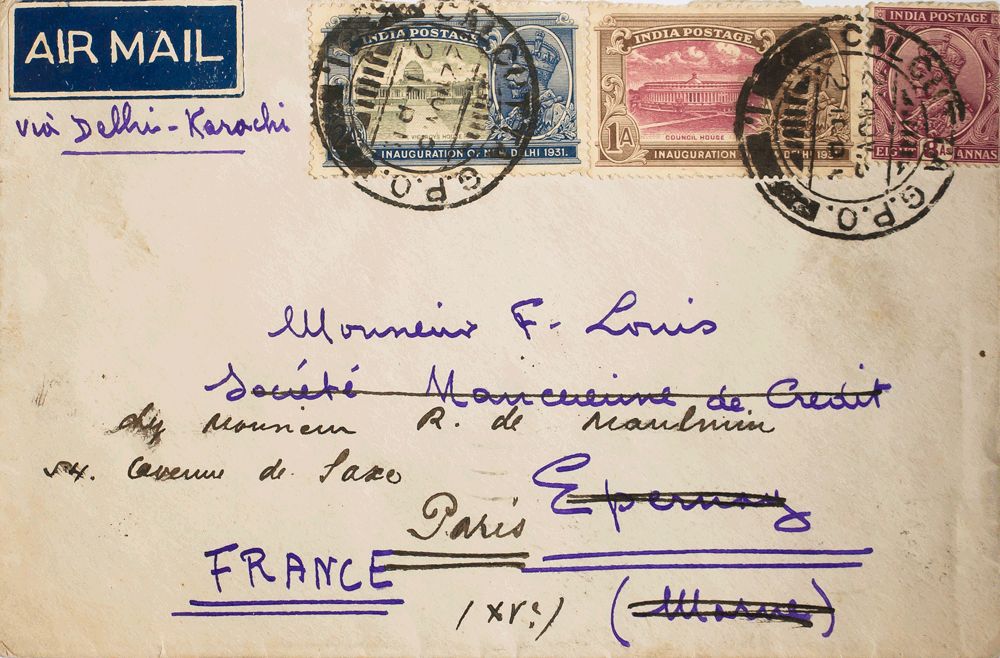 AIR MAIL
via Delhi-Karachi
INDIA POSTAGE
VICEROY'S HOUSE
INAUGURATION OF NEW DELHI 1931.
INDIA POSTAGE
1A
COUNCIL HOUSE
INAUGURATION
DELHI
INDIA POSTAGE
8As
ANNAS
CALCUTTA G.P.O.
CALCUTTA G.P.O.
Monsieur F. Louis
Société de Credit
Monsieur R. de
54. avenue de Saxe
Epernay
Paris
FRANCE
(XVe)
(Marne)